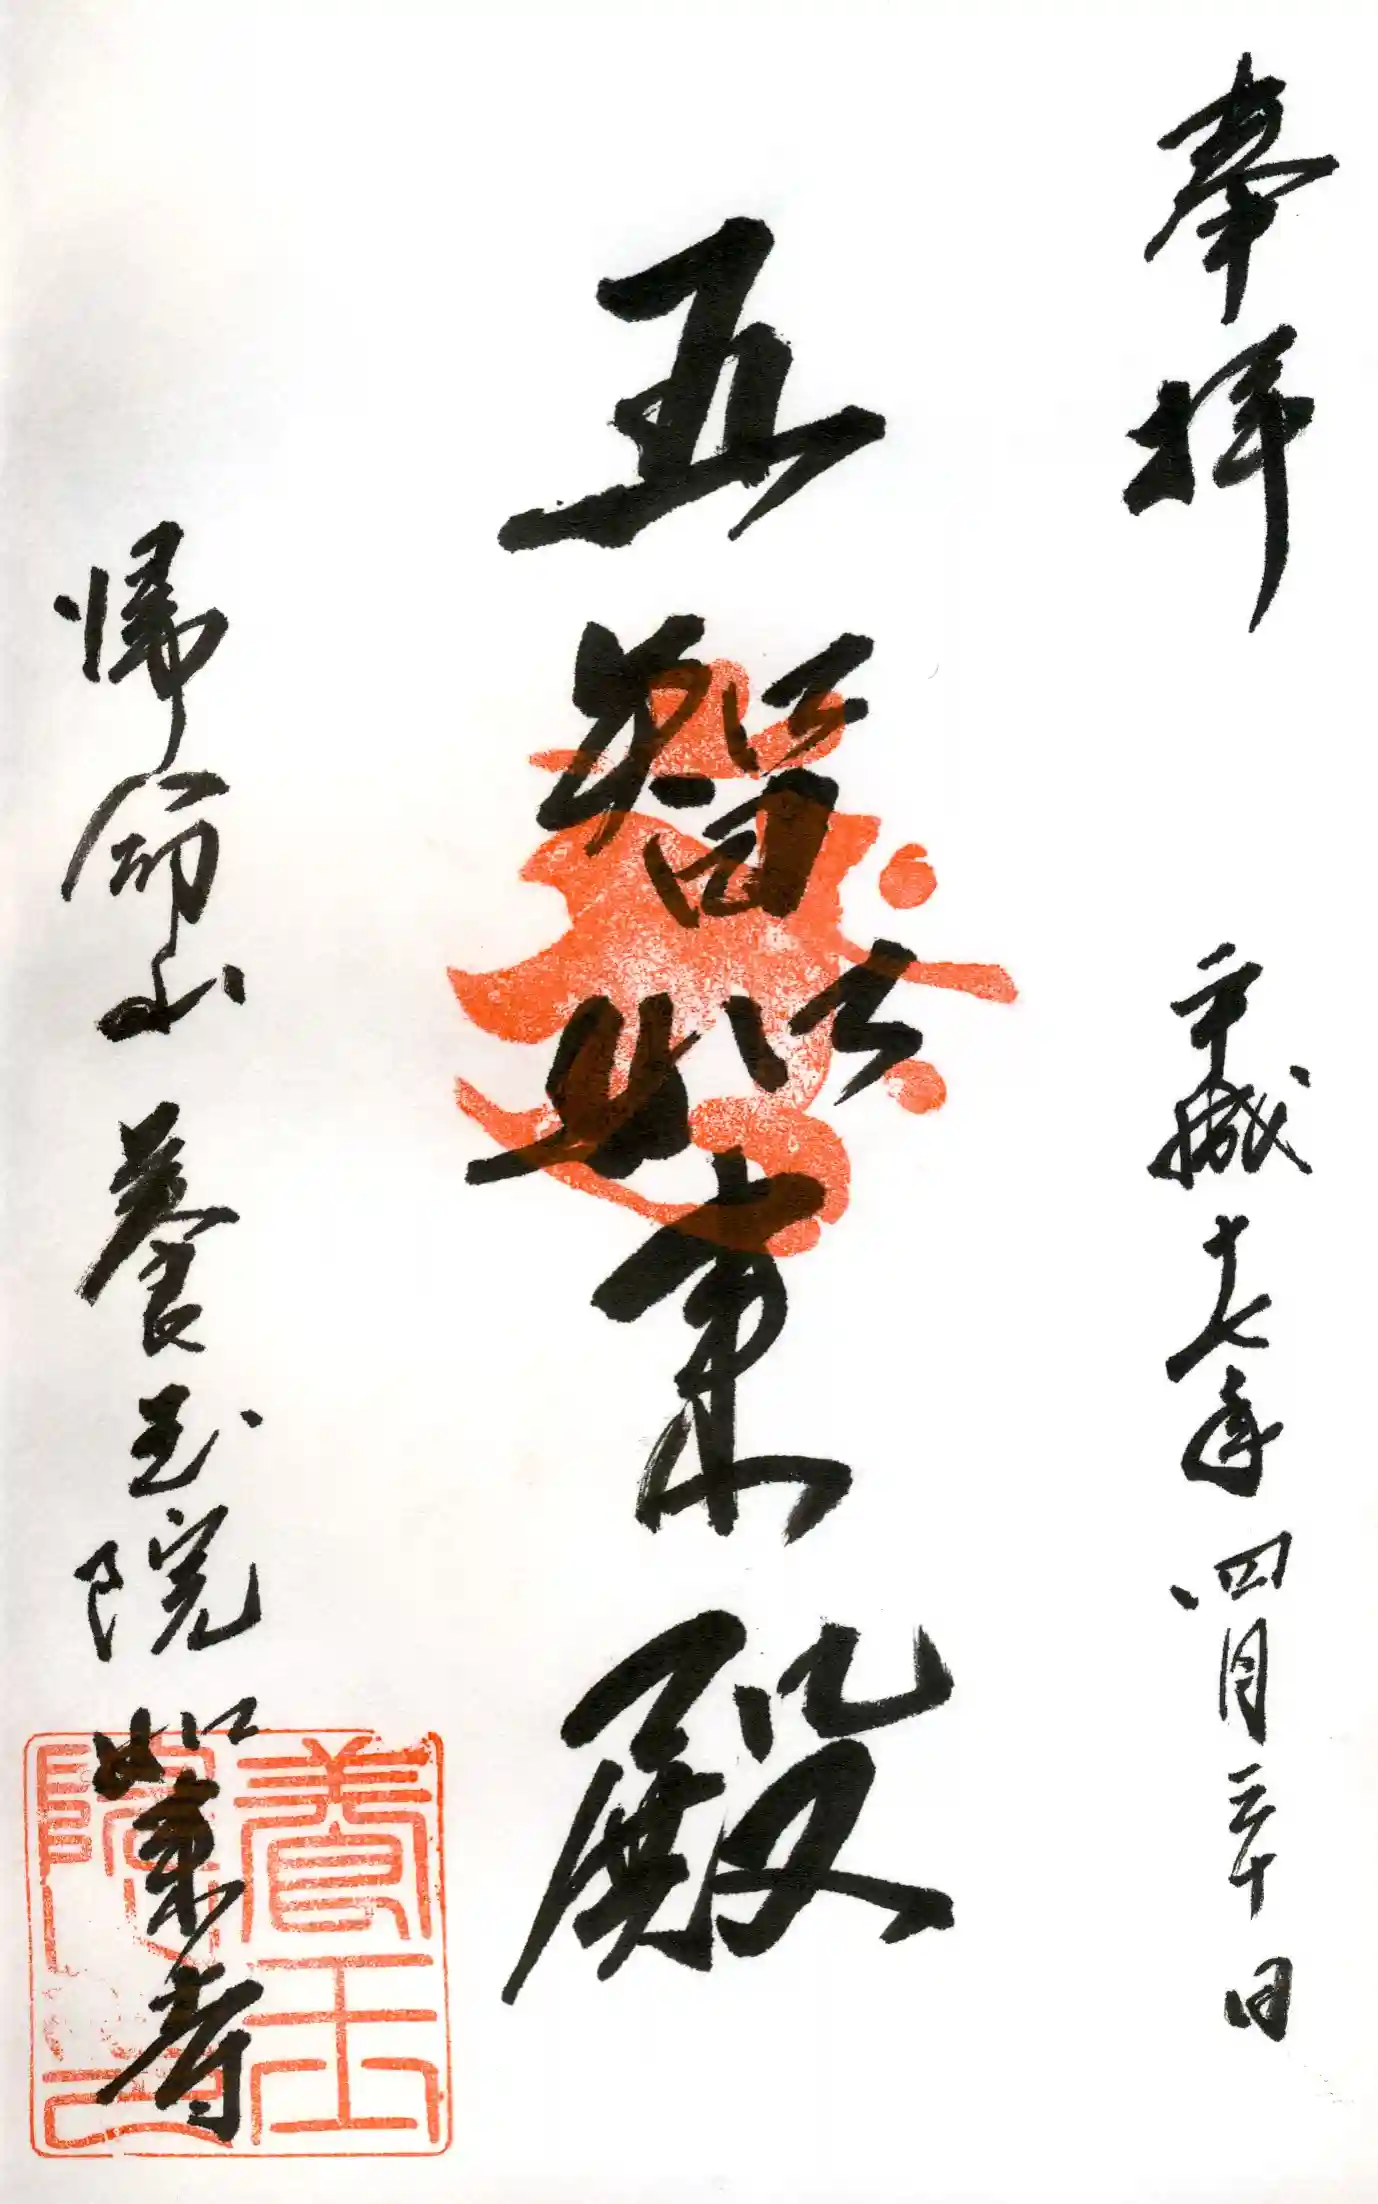 奉拝
平成十七年四月二十日
五智如来殿
帰命山養玉院如来寺
養玉院